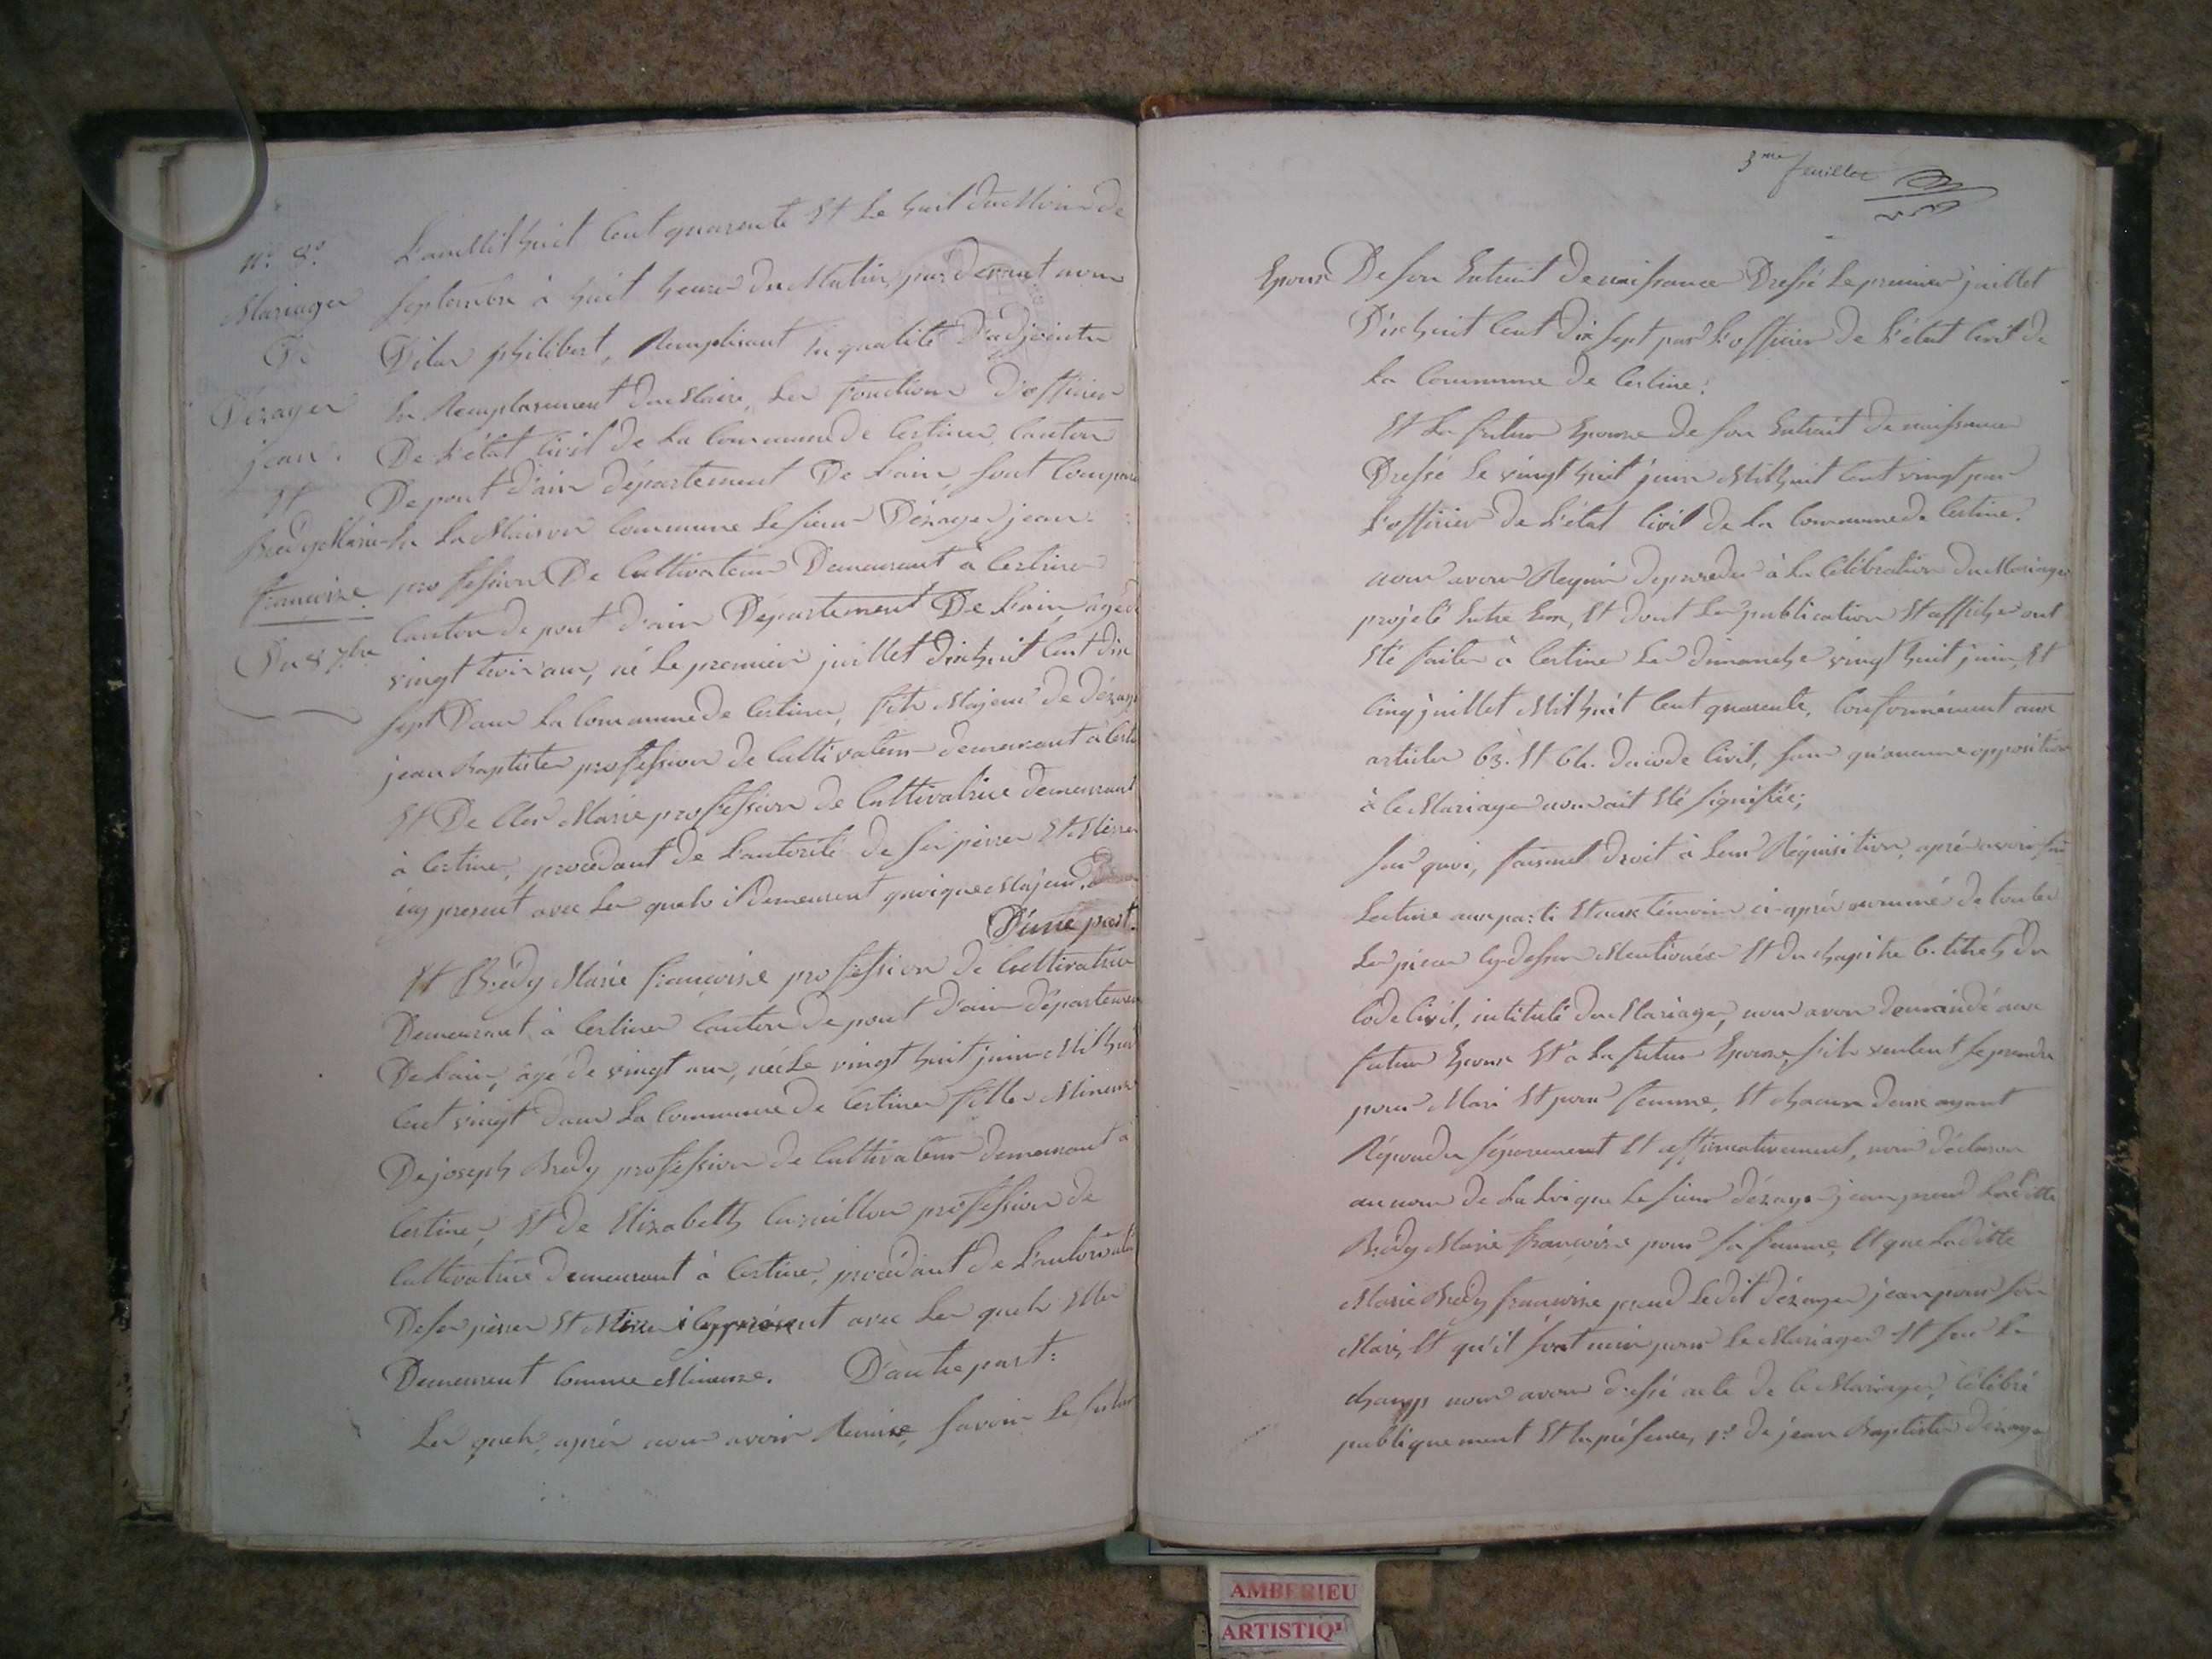 n.° 8.°
Mariage
De
Dézager
jean.
Et
Brédy Marie
françoise
Du 8 7bre
L'an Mil huit Cent quarente Et Le huit du Mois de
Septembre à huit heures du Matin, par Devant nous
philibert, Remplisant En qualité D'adjoint
En Remplasement du Maire, Les fonctions D'officier
De L'état Civil de La Commune de Certines, Canton
De pont d'ain département De L'ain, sont Comparu
En La Maison Commune Le sieur Dézager jean
profession De Cultivateur Demeurant à Certines
Canton de pont d'ain Département De L'ain, âgé de
vingt trois ans, né Le premier juillet Dix huit Cent Dix
sept Dans La Commune de Certines, fils Majeur de dézager
jean Baptiste profession de Cultivateur demeurant à Certi
Et De Marie profession de Cultivatrice demeurant
à Certines, procédant de L'autorité de Ses pères Et Mères
icy présent avec Les quels il Demeurent quoique Majeur.
D'une part.
Et Brédy Marie françoise profession de Cultivatrice
Demeurant à Certines Canton de pont d'ain département
De L'ain, âgé de vingt ans, née Le vingt huit juin Mil huit
Cent vingt dans La Commune de Certines fille Mineure
De joseph Bredy profession de Cultivateur demeurant à
Certines, Et de Elizabeth profession de
Cultivatrice Demeurant à Certines, procédant de L'autorité
De Ses pères Et Mères icy présent avec Les quels Elle
Demeurent Comme Mineure. D'autre part:
Les quels, après nous avoir Remise, Savoir Le futur
3me feuillet
Epoux De son Extrait de naissance Dressé Le premier juillet
Dix huit Cent dix sept par L'officier de L'état Civil de
La Commune de Certines.
Et La future Epouse de son Extrait de naissance
Dressé Le vingt huit juin Mil huit Cent vingt par
L'officier de L'état Civil de La Commune de Certines.
nous avons Requis de procéder à La Célébration du Mariage
projeté Entre Eux, Et dont Les publication Et affiches ont
Eté faites à Certines Les dimanche vingt huit juin, Et
Cinq juillet Mil huit Cent quarente, Conformément aux
articles 63. Et 64. du code Civil, sans qu'aucune opposition
à Ce Mariage nous ait Eté signifiée;
Sur quoi, faisant droit à Leur Réquisition, après avoir fait
Lecture aux parti Et aux témoins ci-après nommé de toutes
Les pièces Cy-dessus Mentionées Et du chapitre 6. titre 5 du
Code Civil, intitulé du Mariage, nous avons demandé aux
futur Epoux Et à La future Epouse, s'ils veulent se prendre
pour Mari Et pour femme, Et chacun deux ayant
Répondu séparement Et affirmativement, nous déclarons
au nom de La Loi que Le sieur dézager jean prend Laditte
Brédy Marie françoise pour sa femme, Et que Laditte
Marie Brédy françoise prend Ledit dézager jean pour son
Mari, Et qu'il sont unis pour Le Mariage Et sur Le
champs nous avons dressé acte de Ce Mariage, Célébré
publiquement Et En présence, 1° de jean Baptiste dézager
AMBERIEU
ARTISTIQ